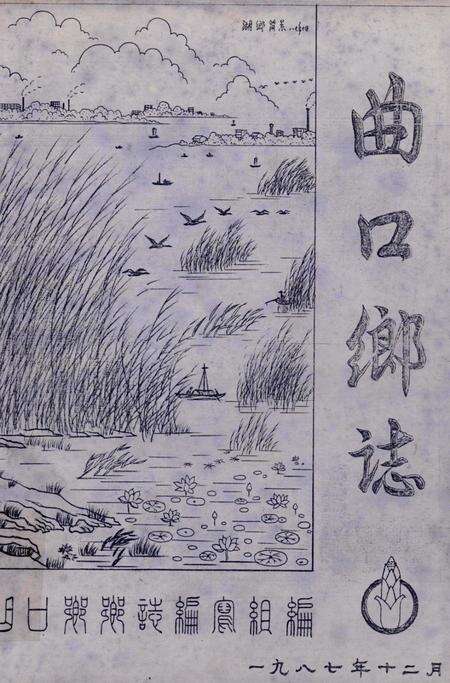 湖鄉
曲口鄉誌
口鄉鄉誌編寫組編
一九八七年十二月